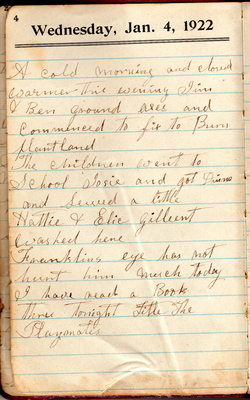 4
Wednesday, Jan. 4, 1922
A cold morning and cloud
warmer this evening Jim
& Ben ground axes and
commenced to fix to Burn
Plantland
The children went to
School Josie and got
and Sewed a little
Hattie & Elie Gilbert
washed here
Franklins eye has not
hurt him much today
I have read a Book
thru tonight Title The
Playmates